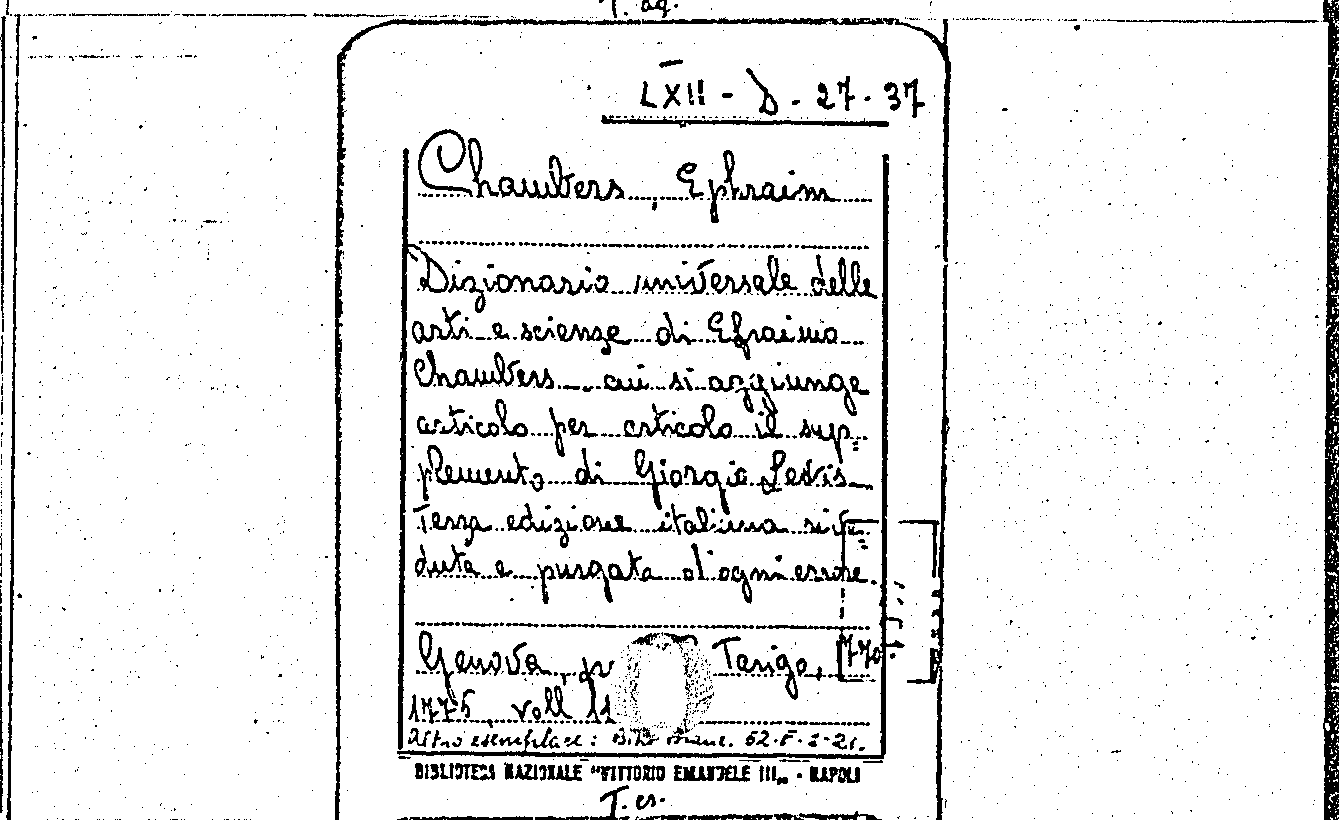 T. aq.
LXII - D - 27 - 37
Chambers, Ephraim
Dizionario universale delle
arti e scienze di Efraimo
Chambers cui si aggiunge
articolo per articolo il sup=
plemento di Giorgio Levis
Terza edizione italiana rive=
duta e purgata d'ogni errore.
Genova, Tarigo, 1770
1775 voll 11
Altro esemplare: 62.F.2-21.
BIBLIOTECA NAZIONALE "VITTORIO EMANUELE III„ - NAPOLI
T. cs.